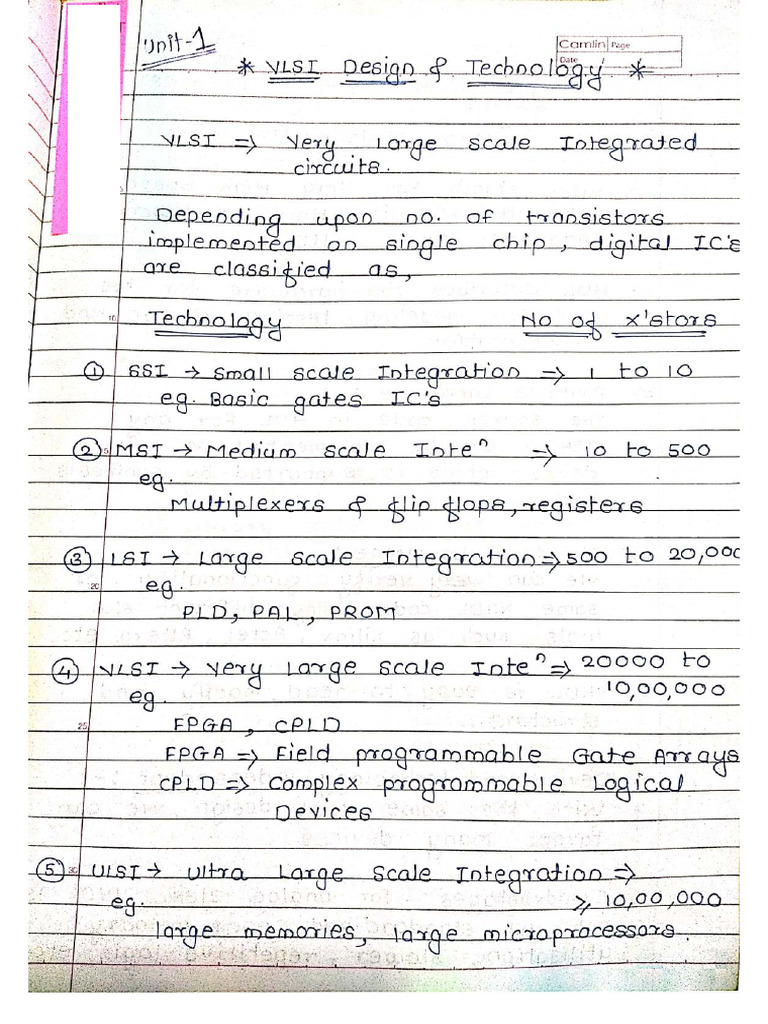 Unit-1
Camlin Page
Date
* VLSI Design & Technology *
VLSI => Very Large Scale Integrated
circuits.
Depending upon no. of transistors
implemented on single chip, digital IC's
are classified as,
10 Technology No of x'stors
① SSI → Small scale Integration => 1 to 10
eg. Basic gates IC's
② MSI → Medium scale Inteⁿ => 10 to 500
eg.
Multiplexers & flip flops, registers
③ LSI → Large Scale Integration => 500 to 20,000
20 eg.
PLD, PAL, PROM
④ VLSI → Very Large Scale Inteⁿ => 20000 to
eg. 10,00,000
25 FPGA, CPLD
FPGA => Field programmable Gate Arrays
CPLD => Complex programmable Logical
Devices
⑤ 30 ULSI → Ultra Large Scale Integration =>
eg. ≥ 10,00,000
large memories, large microprocessors.